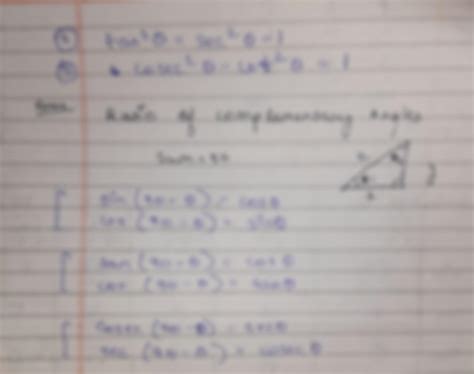 tan²θ = sec²θ - 1
cosec²θ - cot²θ = 1
Ratio of complementary angles
Sum = 90
sin (90 - θ) = cosθ
cos (90 - θ) = sinθ
tan (90 - θ) = cotθ
cot (90 - θ) = tanθ
cosec (90 - θ) = secθ
sec (90 - θ) = cosecθ